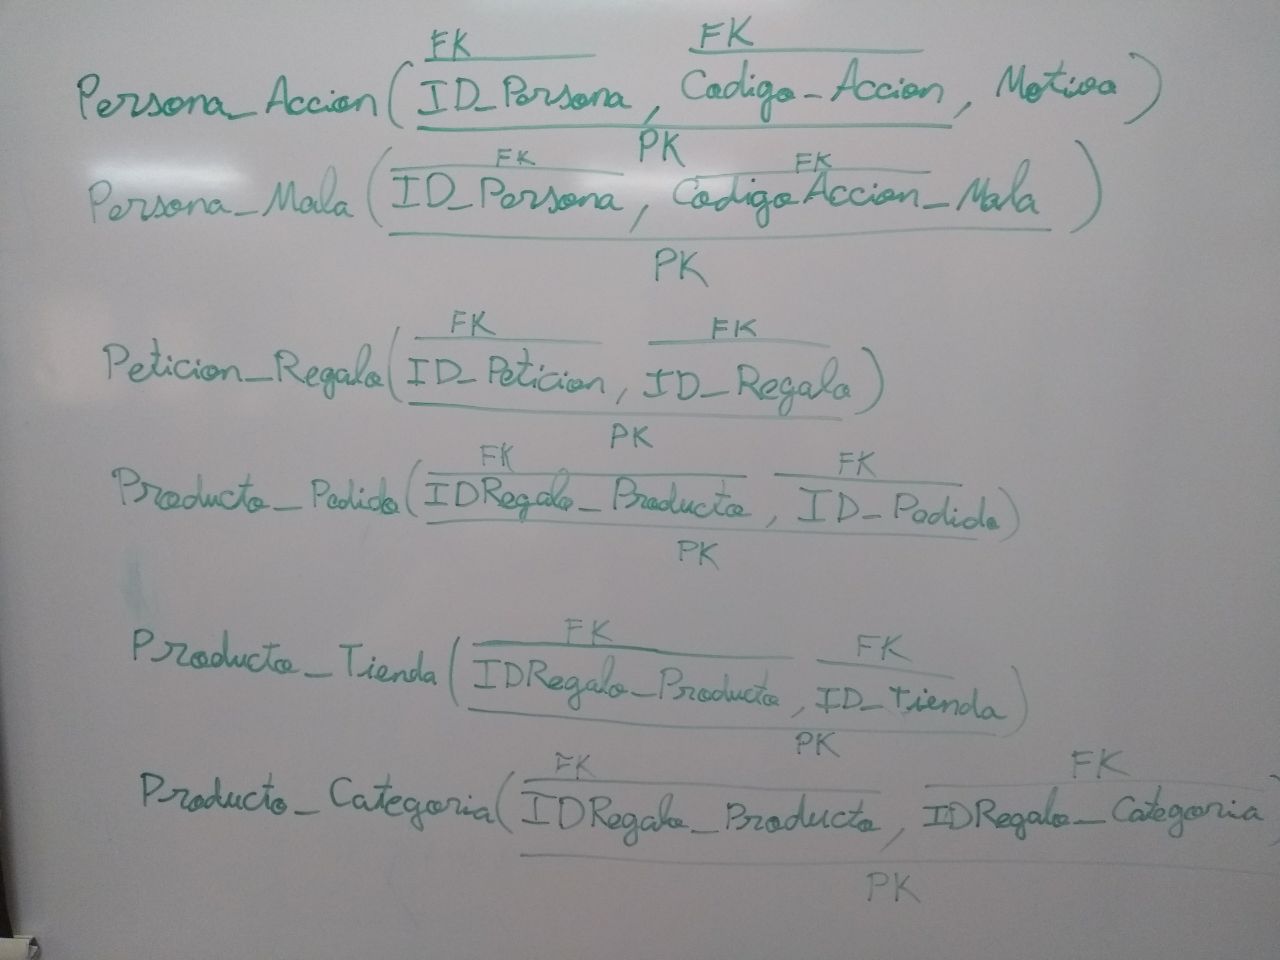 FK FK
Persona_Accion(ID_Persona, Codigo_Accion, Motivo)
PK
FK FK
Persona_Mala(ID_Persona, CodigoAccion_Mala)
PK
FK FK
Peticion_Regalo(ID_Peticion, ID_Regalo)
PK
FK FK
Producto_Pedido(IDRegalo_Producto, ID_Pedido)
PK
FK FK
Producto_Tienda(IDRegalo_Producto, ID_Tienda)
PK
FK FK
Producto_Categoria(IDRegalo_Producto, IDRegalo_Categoria)
PK